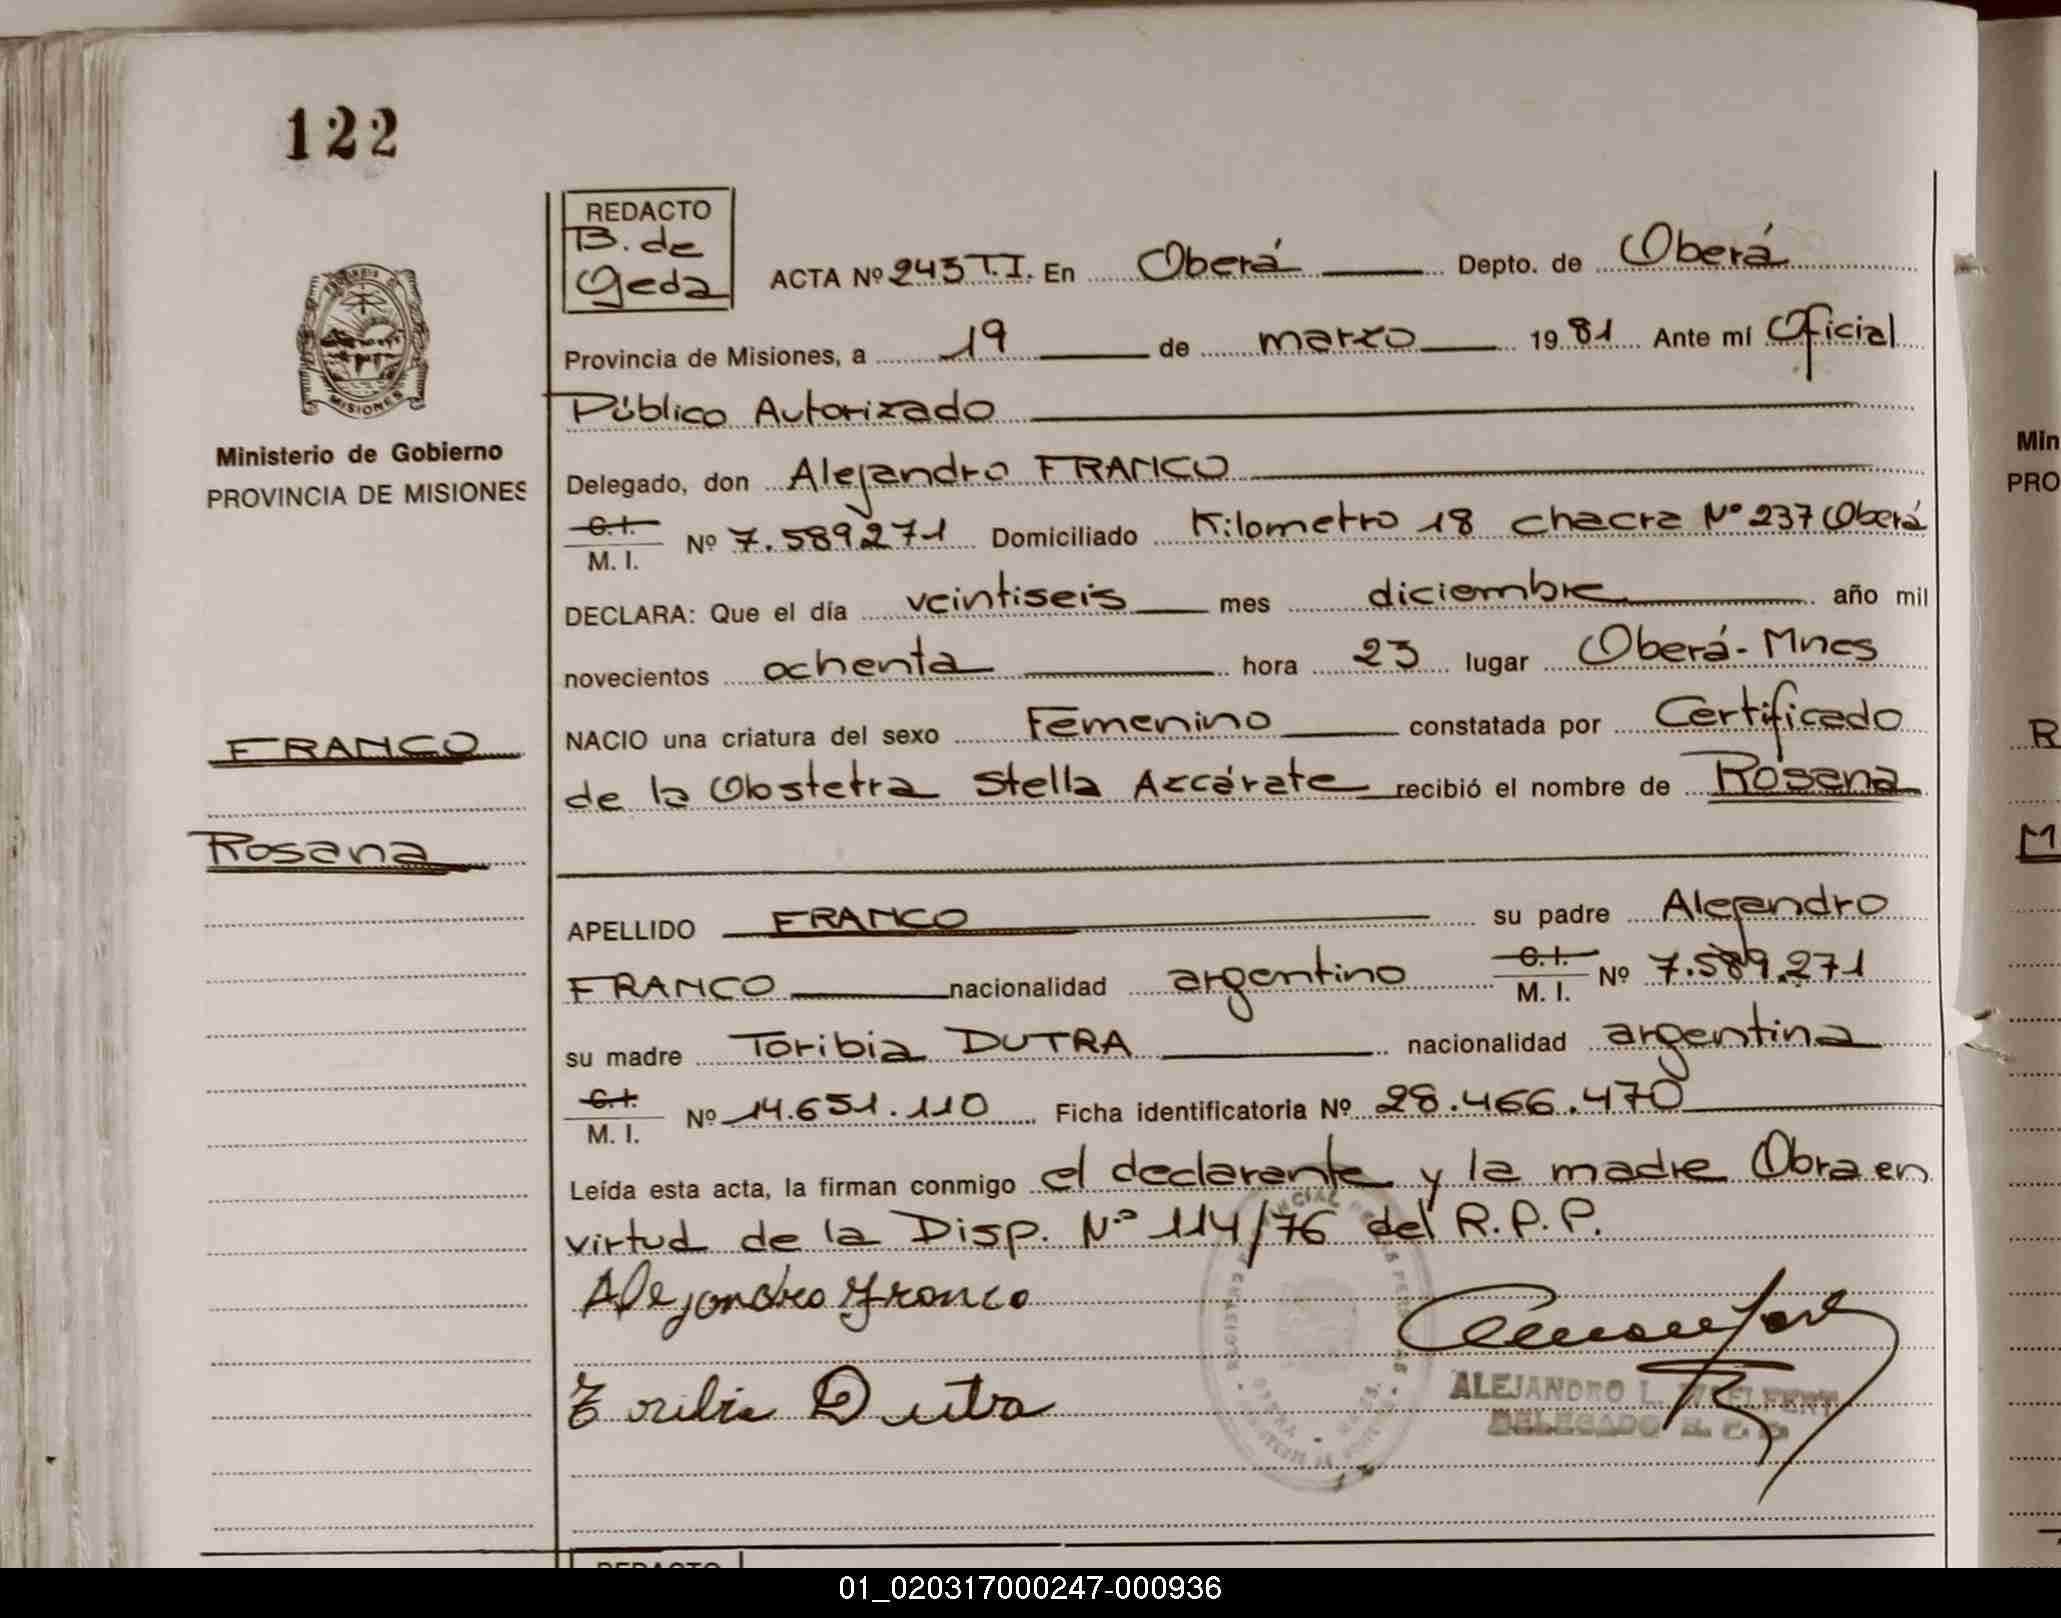 122
REDACTO
B. de
Geda
ACTA Nº 243 T.I. En Oberá Depto. de Oberá
Provincia de Misiones, a 19 de marzo 1981 Ante mí Oficial
Público Autorizado
Delegado, don Alejandro FRANCO
C.I. M. I. Nº 7.589.271 Domiciliado Kilometro 18 chacra Nº 237 Oberá
DECLARA: Que el día veintiseis mes diciembre año mil
novecientos ochenta hora 23 lugar Oberá - Mnes
NACIO una criatura del sexo Femenino constatada por Certificado
de la Obstetra Stella Azcárate recibió el nombre de Rosana
APELLIDO FRANCO su padre Alejandro
FRANCO nacionalidad argentino C.I. M. I. Nº 7.589.271
su madre Toribia DUTRA nacionalidad argentina
C.I. M. I. Nº 14.651.110 Ficha identificatoria Nº 28.466.470
Leída esta acta, la firman conmigo el declarante y la madre Obra en
virtud de la Disp. Nº 114/76 del R.P.P.
Alejandro Franco
Toribia Dutra
ALEJANDRO L.
DELEGADO R. P. P.
MISIONES
Ministerio de Gobierno
PROVINCIA DE MISIONES
FRANCO
Rosana
REDACTO
Min
PRO
R
M
01_020317000247-000936